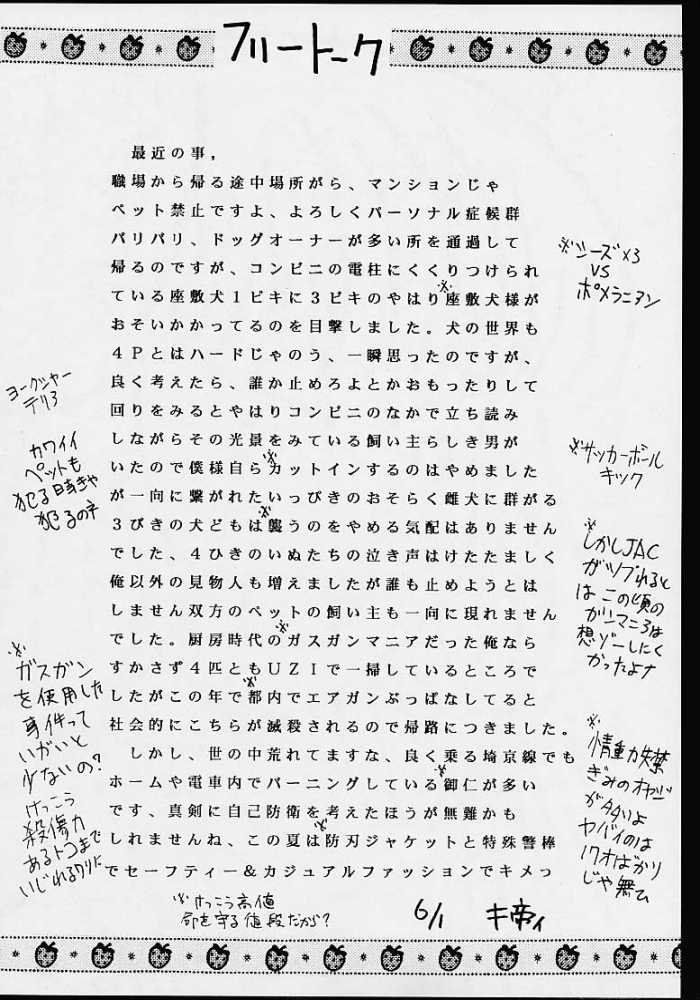 フリートーク
最近の事,
職場から帰る途中場所がら、マンションじゃ
ペット禁止ですよ、よろしくパーソナル症候群
バリバリ、ドッグオーナーが多い所を通過して
帰るのですが、コンビニの電柱にくくりつけられ
ている座敷犬1ピキに3ピキのやはり※座敷犬様が
おそいかかってるのを目撃しました。犬の世界も
4Pとはハードじゃのう、一瞬思ったのですが、
良く考えたら、誰か止めろよとかおもったりして
回りをみるとやはりコンビニのなかで立ち読み
しながらその光景をみている飼い主らしき男が
いたので僕様自ら※カットインするのはやめました
が一向に繋がれたいっぴきのおそらく雌犬に群がる
3びきの犬どもは※襲うのをやめる気配はありません
でした、4ひきのいぬたちの泣き声はけたたましく
俺以外の見物人も増えましたが誰も止めようとは
しません双方のペットの飼い主も一向に現れません
でした。厨房時代の※ガスガンマニアだった俺なら
すかさず4匹ともUZIで一掃しているところで
したがこの年で※都内でエアガンぶっぱなしてると
社会的にこちらが滅殺されるので帰路につきました。
しかし、世の中荒れてますな、良く乗る埼京線でも
ホームや電車内でバーニングしている※御仁が多い
です、真剣に自己防衛を考えたほうが無難かも
しれませんね、この夏は※防刃ジャケットと特殊警棒
でセーフティー&カジュアルファッションでキメっ
※シーズ×3
VS
ポメラニアン
ヨークシャー
テリ3
カワイイ
ペットも
犯る時きゃ
犯るのネ
※サッカーボール
キック
※しかしJAC
がツブれると
はこの頃の
ガンマニろは
想ゾーしにく
かったよナ
※ガスガン
を使用した
事件って
いがいと
少ないの?
けっこう
殺傷力
あるトコまで
いじれるワリに
※情重力失禁
ぎみのオヤジ
がタタいよ
ヤバイのは
17才ばかり
じゃ無ひ
※けっこう高値
命を守る値段だから?
6/1 キ帝ィ